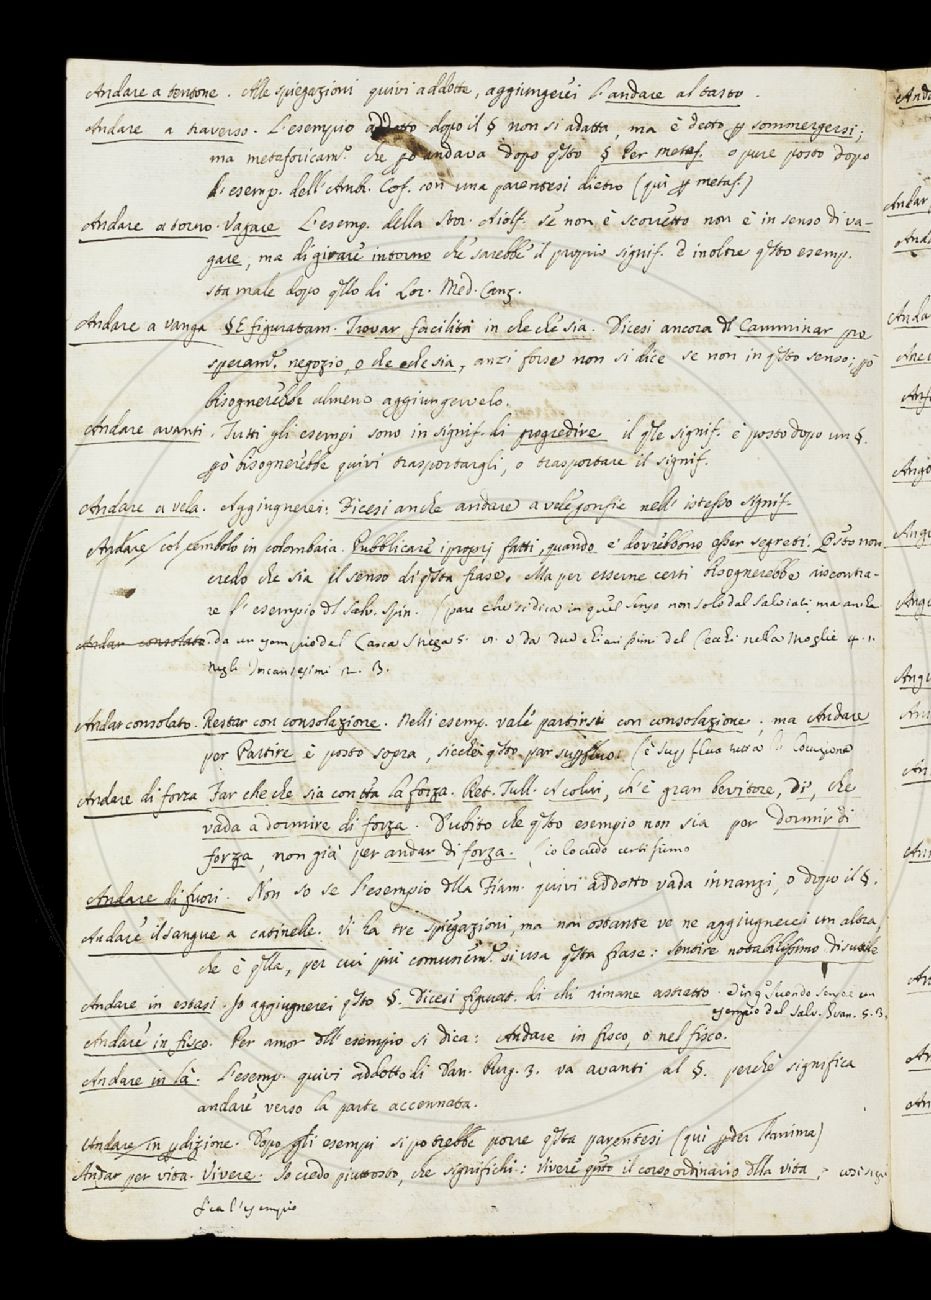 Andare a tentone. Alle spiegazioni quivi addotte, aggiungerei l'andare al tasto.
Andare a traverso. L'esempio addotto dopo il § non si adatta, ma è detto p sommergersi;
ma metaforicam.e che pò andava dopo qsto § Per metaf. opure posto dopo
l'esemp. dell'Amb. Cof. con una parentesi dietro (qui p metaf.)
Andare attorno. Vagare L'esemp. della Stor. Aiolf. se non è scorretto non è in senso di va-
gare, ma di girare intorno che sarebbe il proprio signif. E inoltre qsto esemp.
sta male dopo qllo di Lor. Med. Canz.
Andare a vanga §E figuratam. Trovar facilità in che che sia. Dicesi ancora Dl Camminar pro
speram.e negozio, o che che sia, anzi forse non si dice se non in qsto senso; pò
bisognerebbe almeno aggiungervelo.
Andare avanti. Tutti gli esempi sono in signif. di progredire il qle signif. è posto dopo un §.
pò bisognerebbe quivi trasportargli, o trasportare il signif.
Andare a vela. Aggiugnerei: Dicesi anche andare a vele gonfie nell' istesso signif.
Andare col cembolo in colombaia. Pubblicare i proprj fatti, quando e' dovrebbono esser segreti. Qsto non
credo che sia il senso di qsta frase. Ma per esserne certi bisognerebbe riscontra-
re l'esempio dl Salv. Spin. (pare che si dica in quel senso non solo dal Salviati ma anche
Andar consolato. da un esempio del Caro 5. e da due del Cecchi nella Moglie 4. 1.
negli Incantesimi 2. 3.
Andar consolato. Restar con consolazione. Nelli esemp. vale partirsi con consolazione; ma Andare
per Partire è posto sopra, sicchè qsto par supfluo. (è supfluo tutta la locuzione
Andare di forza Far che che sia con tta la forza. Ret. Tull. A colui, ch'è gran bevitore, di', che
vada a dormire di forza. Dubito che qsto esempio non sia per dormir di
forza, non già per andar di forza. (io lo credo certissimo
Andare di fuori. Non so se l'esempio dlla Fiam. quivi addotto vada innanzi, o dopo il §.
Andare il sangue a catinelle. Vi ha tre spiegazioni, ma non ostante ve ne aggiugnerei un altra,
che è qlla, per cui più comunem.e si usa qsta frase: sentire notabilissimo disutile
Andare in estasi. Io aggiugnerei qsto §. Dicesi figurat. di chi rimane astratto. E in qsto secondo senso è un
esempio del Salv. Gran. 5. 3.
Andare in fisco. Per amor dll'esempio si dica: Andare in fisco, o nel fisco.
Andare in là. L'esemp. quivi addotto di Dan. Purg. 3. va avanti al §. perchè significa
andare verso la parte accennata.
Andare in pdizione. Dopo gli esempi si potrebbe porre qsta parentesi (qui pder l'anima)
Andar per vita. Vivere. Io credo piuttosto, che significhi: vivere gusto il corso ordinario dlla vita; così
l'esempio